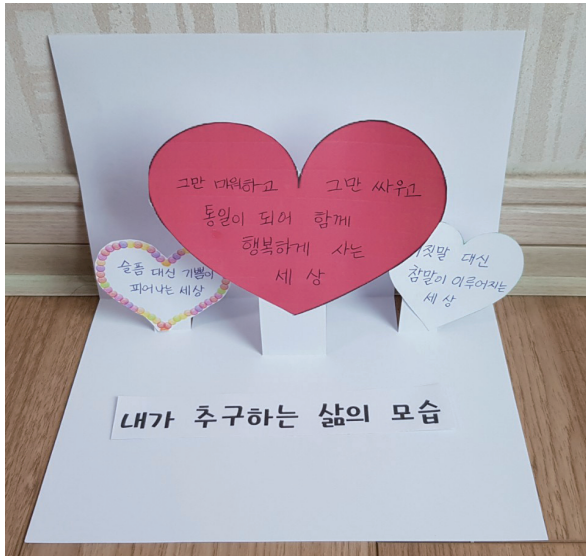 그만 미워하고 그만 싸우고
통일이 되어 함께
행복하게 사는
세 상
슬픔 대신 기쁨이
피어나는 세상
거짓말 대신
참말이 이루어지는
세 상
내가 추구하는 삶의 모습